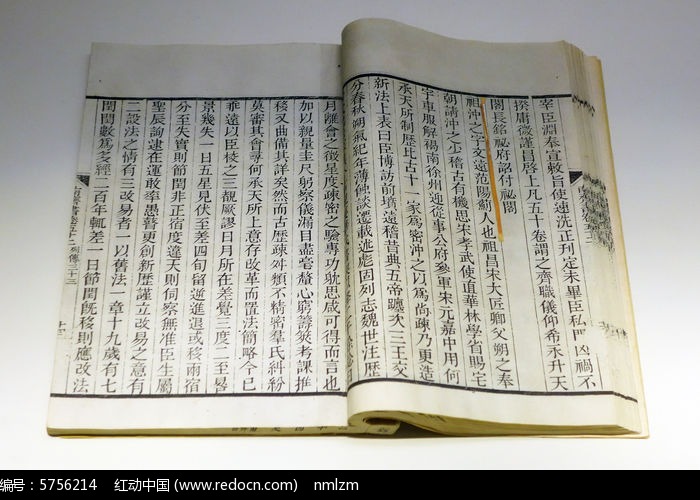 宰臣淵奉宣敕旨使速洗正刋定未畢臣私門凶禍不
揆庸微謹冒啓上凡五十卷謂之齊職儀仰希永升天
閣長銘祕府詔付祕閣
祖沖之字文遠范陽薊人也祖昌宋大匠卿父朔之奉
朝請沖之少稽古有機思宋孝武使直華林學省賜宅
宇車服解褐南徐州迎從事公府參軍宋元嘉中用何
承天所制歷比古十一家爲密沖之以爲尚疎乃更造
新法上表曰臣博訪前墳遠稽昔典五帝躔次三王交
分春秋朔氣紀年薄蝕談遷載述彪固列志魏世注歷
月離會之徵星度疎密之驗專功耽思咸可得而言也
加以親量圭尺躬察儀漏目盡毫釐心窮籌筴考課推
移又曲備其詳矣然而古歷疎舛類不精密羣氏糾紛
莫審其會尋何承天所上意存改革而置法簡略今已
乖遠以臣校之三覩厥謬日月所在差覺三度二至晷
景幾失一日五星見伏至差四旬留逆進退或移兩宿
分至失實則節閏非正宿度違天則伺察無准臣生屬
聖辰詢逮在運敢率愚瞽更創新歷謹立改易之意有
二設法之情有三改易者一以舊法一章十九歲有七
閏閏數爲多經二百年輒差一日節閏既移則應改法
南齊書卷五十二列傳三十三
编号：5756214 红动中国 (www.redocn.com) nmlzm